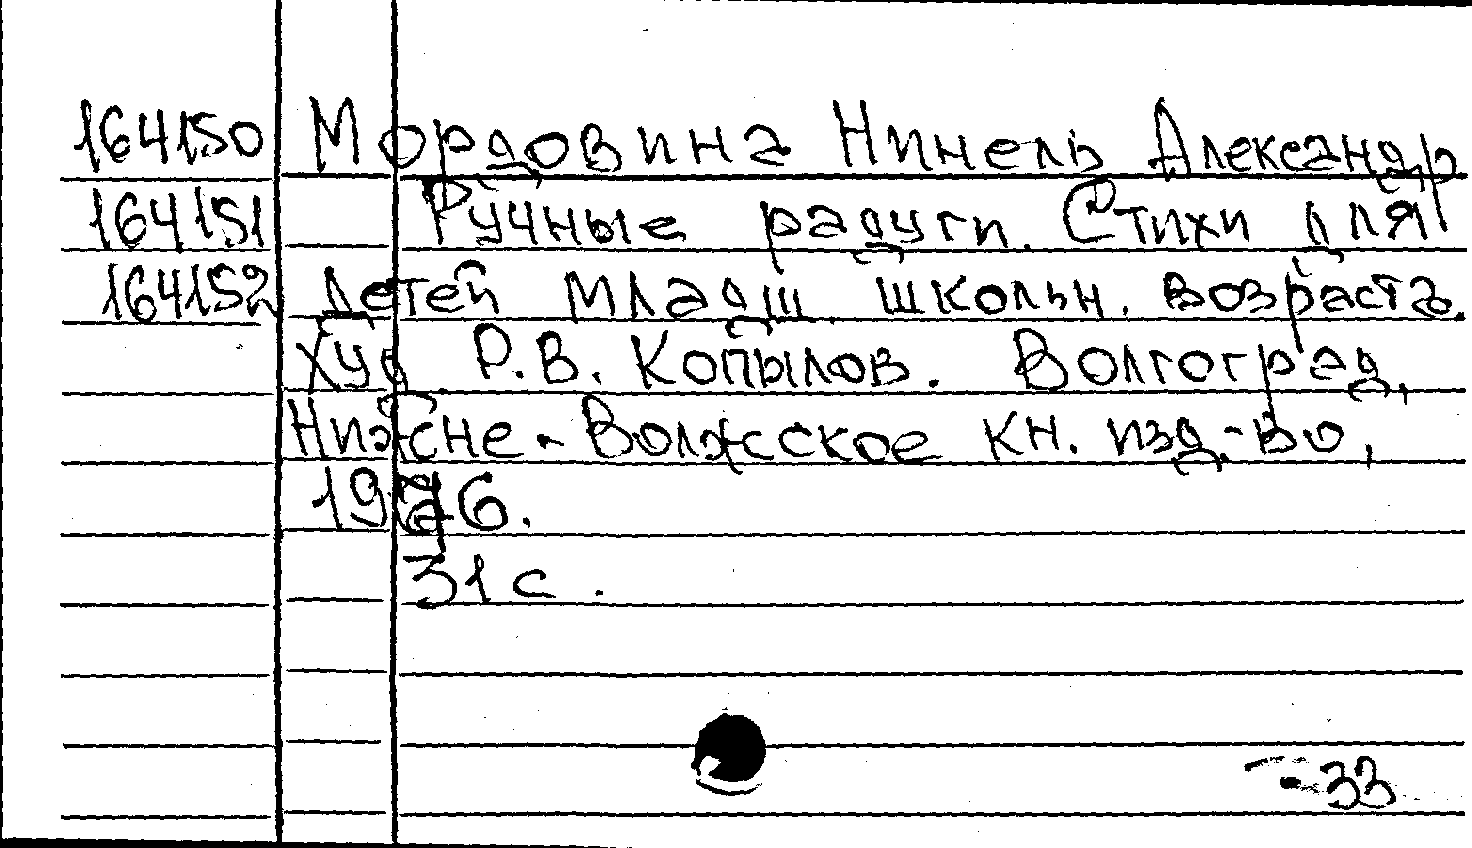 164150 Мордовина Нинель Александр
164151 Ручные радуги. Стихи для
164152 детей младш. школьн. возраста.
Худ. Р.В. Копылов. Волгоград,
Нижне-Волжское кн. изд-во,
1976.
31 с.
-33